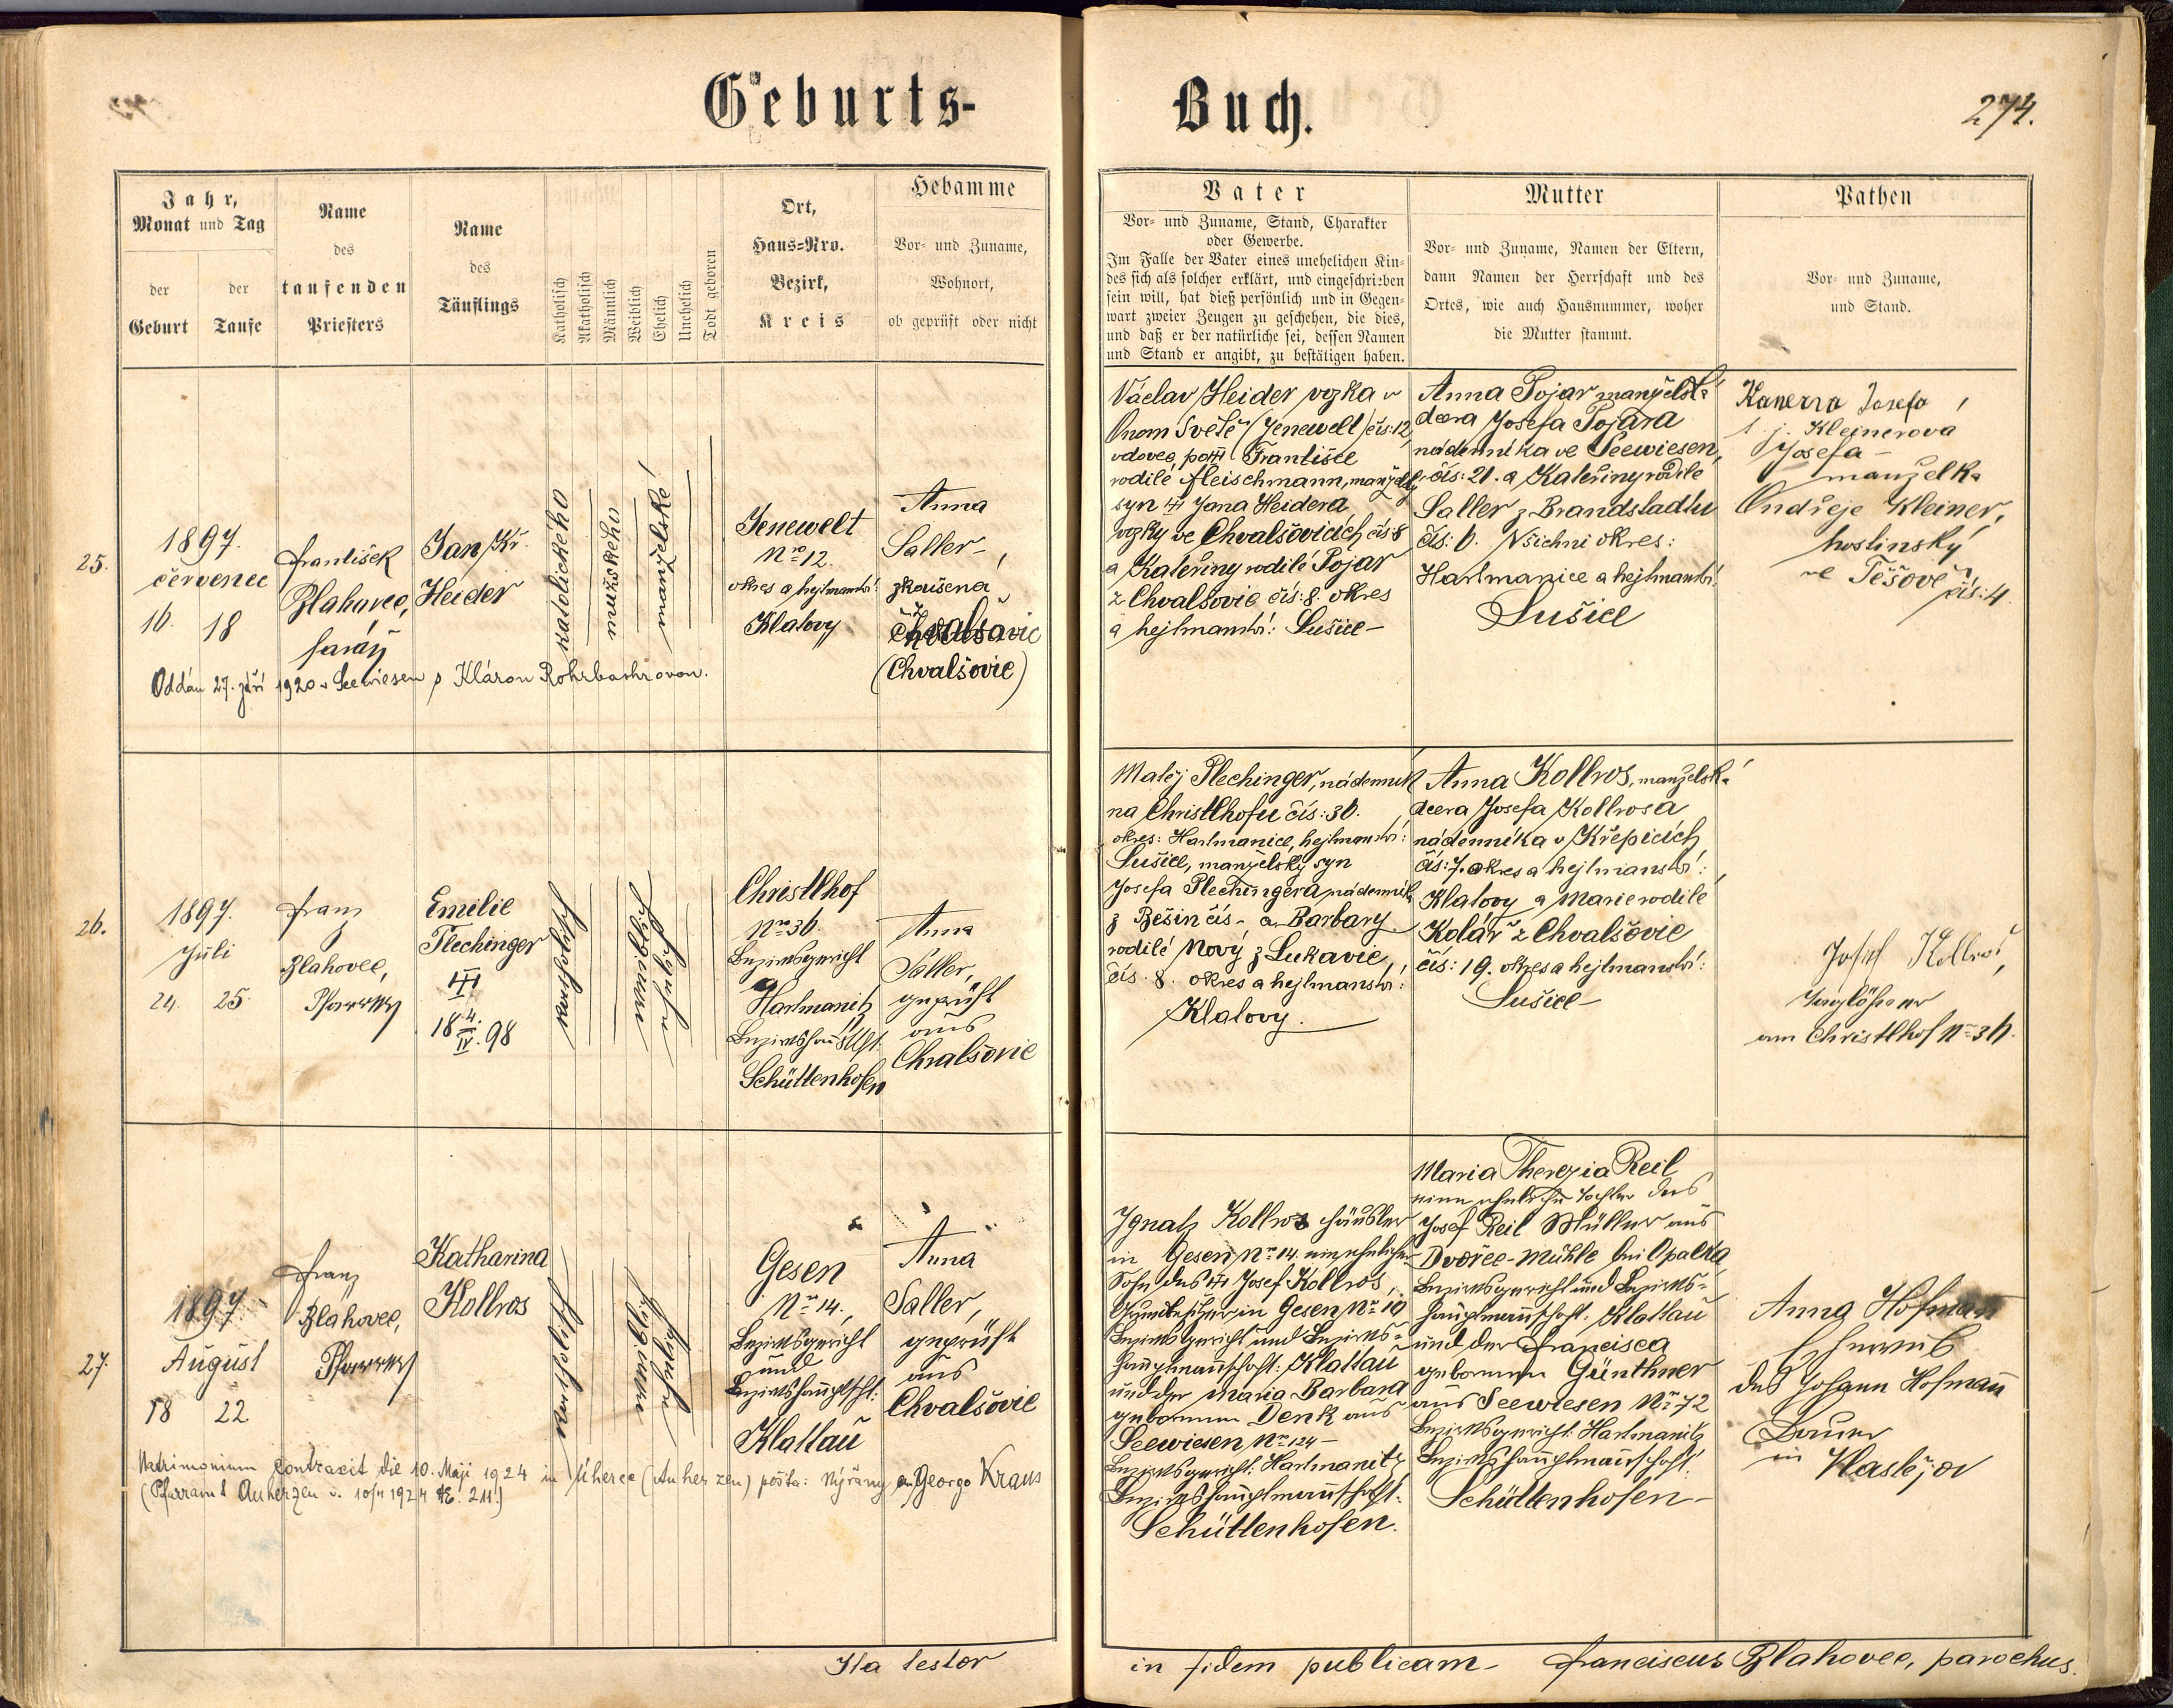 Geburts-
Buch.
274.
Jahr,
Monat und Tag
der
Geburt
der
Taufe
Name
des
taufenden
Priesters
Name
des
Täuflings
Katholisch
Akatholisch
Männlich
Weiblich
Ehelich
Unehelich
Todt geboren
Ort,
Haus=Nro.
Bezirk,
Kreis
Hebamme
Vor= und Zuname,
Wohnort,
ob geprüft oder nicht
Vater
Vor= und Zuname, Stand, Charakter
oder Gewerbe.
Im Falle der Vater eines unehelichen Kin=
des sich als solcher erklärt, und eingeschrieben
sein will, hat dieß persönlich und in Gegen=
wart zweier Zeugen zu geschehen, die dies,
und daß er der natürliche sei, dessen Namen
und Stand er angibt, zu bestätigen haben.
Mutter
Vor= und Zuname, Namen der Eltern,
dann Namen der Herrschaft und des
Ortes, wie auch Hausnummer, woher
die Mutter stammt.
Pathen
Vor= und Zuname,
und Stand.
25.
1897.
červenec
16. 18
František
Blahovec,
farář
Jan Kř.
Heider
katolického
mužského
manželské
Jenewelt
Nro 12.
okres a hejtmanství:
Klatovy
Anna
Saller,
zkoušená
z
(Chvalšovic)
Oddán 27. září 1920 v Seewiesen s Klárou Rohrbachrovou.
Václav Heider vozka v
Onom Světě (Jenewelt) čís: 12,
vdovec po † Františce
rodilé Fleischmann, manželský
syn † Jana Heidera,
vozky ve Chvalšovicích čís 8
a Kateřiny rodilé Pojar
z Chvalšovic čís: 8. okres
a hejtmanství: Sušice –
Anna Pojar manželská
dcera Josefa Pojara
nádenníka ve Seewiesen,
čís: 21. a Kateřiny rodilé
Saller z Brandstadtu
čís: 6. Všichni okres:
Hartmanice a hejtmanství:
Sušice
Josefa
t. j. Kleinerova
Josefa –
manželka
Ondřeje Kleiner,
hostinský
ve Těšově čís: 4.
26.
1897.
Juli
24. 25.
Franz
Blahovec,
Pfarrer
Emilie
Plechinger
†
18 4./IV. 98
katholisch
weiblich
ehelich
Christlhof
Nro 36.
Bezirksgericht
Hartmanitz
Bezirkshauptschft.
Schüttenhofen
Anna
Saller,
geprüft
aus
Chvalšovic
Matěj Plechinger, nádenník
na Christlhofu čís: 36.
okres: Hartmanice, hejtmanství:
Sušice, manželský syn
Josefa Plechingera nádenník
z Běšin čís – a Barbary
rodilé Nový z Lukavic,
čís. 8. okres a hejtmanství:
Klatovy.
Anna Kollros, manželská
dcera Josefa Kollrosa
nádenníka v Křepicích
čís: 7. okres a hejtmanství:
Klatovy a Marie rodilé
Kolář z Chvalšovic
čís: 19. okres a hejtmanství:
Sušice –
Josef Kollros,
Taglöhner
am Christlhof No 36.
27.
1897.
August
18 22
Franz
Blahovec,
Pfarrer
Katharina
Kollros
katholisch
weiblich
eheliche
Gesen
Nro 14.
Bezirksgericht
und
Bezirkshauptschft:
Klattau
Anna
Saller,
geprüft
aus
Chvalšovic
Matrimonium contraxit die 10. Maji 1924 in Úherce (Auherzen) pošta: Nýřany cum Georgo Kraus
(Pfarramt Auherzen v. 1924 . 211.)
Ignatz Kollros Häusler
in Gesen Nro 14. ein ehelicher
Sohn des † Josef Kollros,
Grundbesitzer in Gesen No 10
Bezirksgericht und Bezirks=
hauptmannschaft: Klattau
und der Maria Barbara
geborenen Denk aus
Seewiesen Nro 124 –
Bezirksgericht: Hartmanitz
Bezirkshauptmannschaft:
Schüttenhofen.
Maria Therezia Reil
eine eheliche Tochter des
Josef Reil Müller aus
Dvořec-Mühle bei Opalka
Bezirksgericht und Bezirks=
hauptmannschaft: Klattau
und der Francisca
geborenen Günthner
aus Seewiesen No 72
Bezirksgericht: Hartmanitz
Bezirkshauptmannschaft:
Schüttenhofen –
Anna Hofmann
Eheweib
des Johann Hofmann
Bauer
in Hastějov
Ita testor
in fidem publicam – Franciscus Blahovec, parochus.